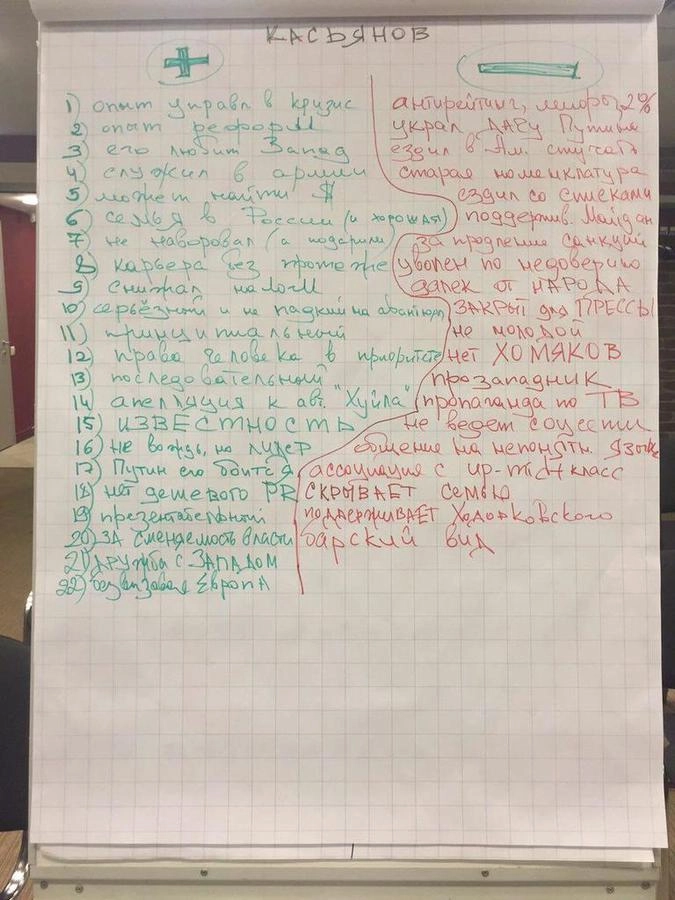 КАСЬЯНОВ
1) опыт управл в кризис
2) опыт реформ
3) его любит Запад
4) служил в армии
5) может найти $
6) семья в России (и хорошая)
7) не наворовал (а подарили)
8 карьера без протеже
9 снижал налоги
10) серьёзный и не падкий на авантюры
11) принципиальный
12) права человека в приоритете
13) последовательный
14 апелляция к авт. "Хуйла"
15) ИЗВЕСТНОСТЬ
16) не вождь, но лидер
17) Путин его боится
18 нет дешевого PR
19) презентательный
20) ЗА сменяемость власти
21) дружба с ЗАПАДОМ
22) безвизовая Европа
антирейтинг, мемory, 2%
украл дачу Путина
ездил в Ам. стучать
старая номенклатура
ездил со списками
поддержив. Майдан
за продление санкций
уволен по недоверию
далек от НАРОДА
ЗАКРЫТ для ПРЕССЫ
не молодой
нет ХОМЯКОВ
прозападник
пропаганда по ТВ
не ведет соцсети
общение на непонятн. языке
ассоциация с класс
СКРЫВАЕТ семью
ПОДДЕРЖИВАЕТ Ходорковского
барский вид